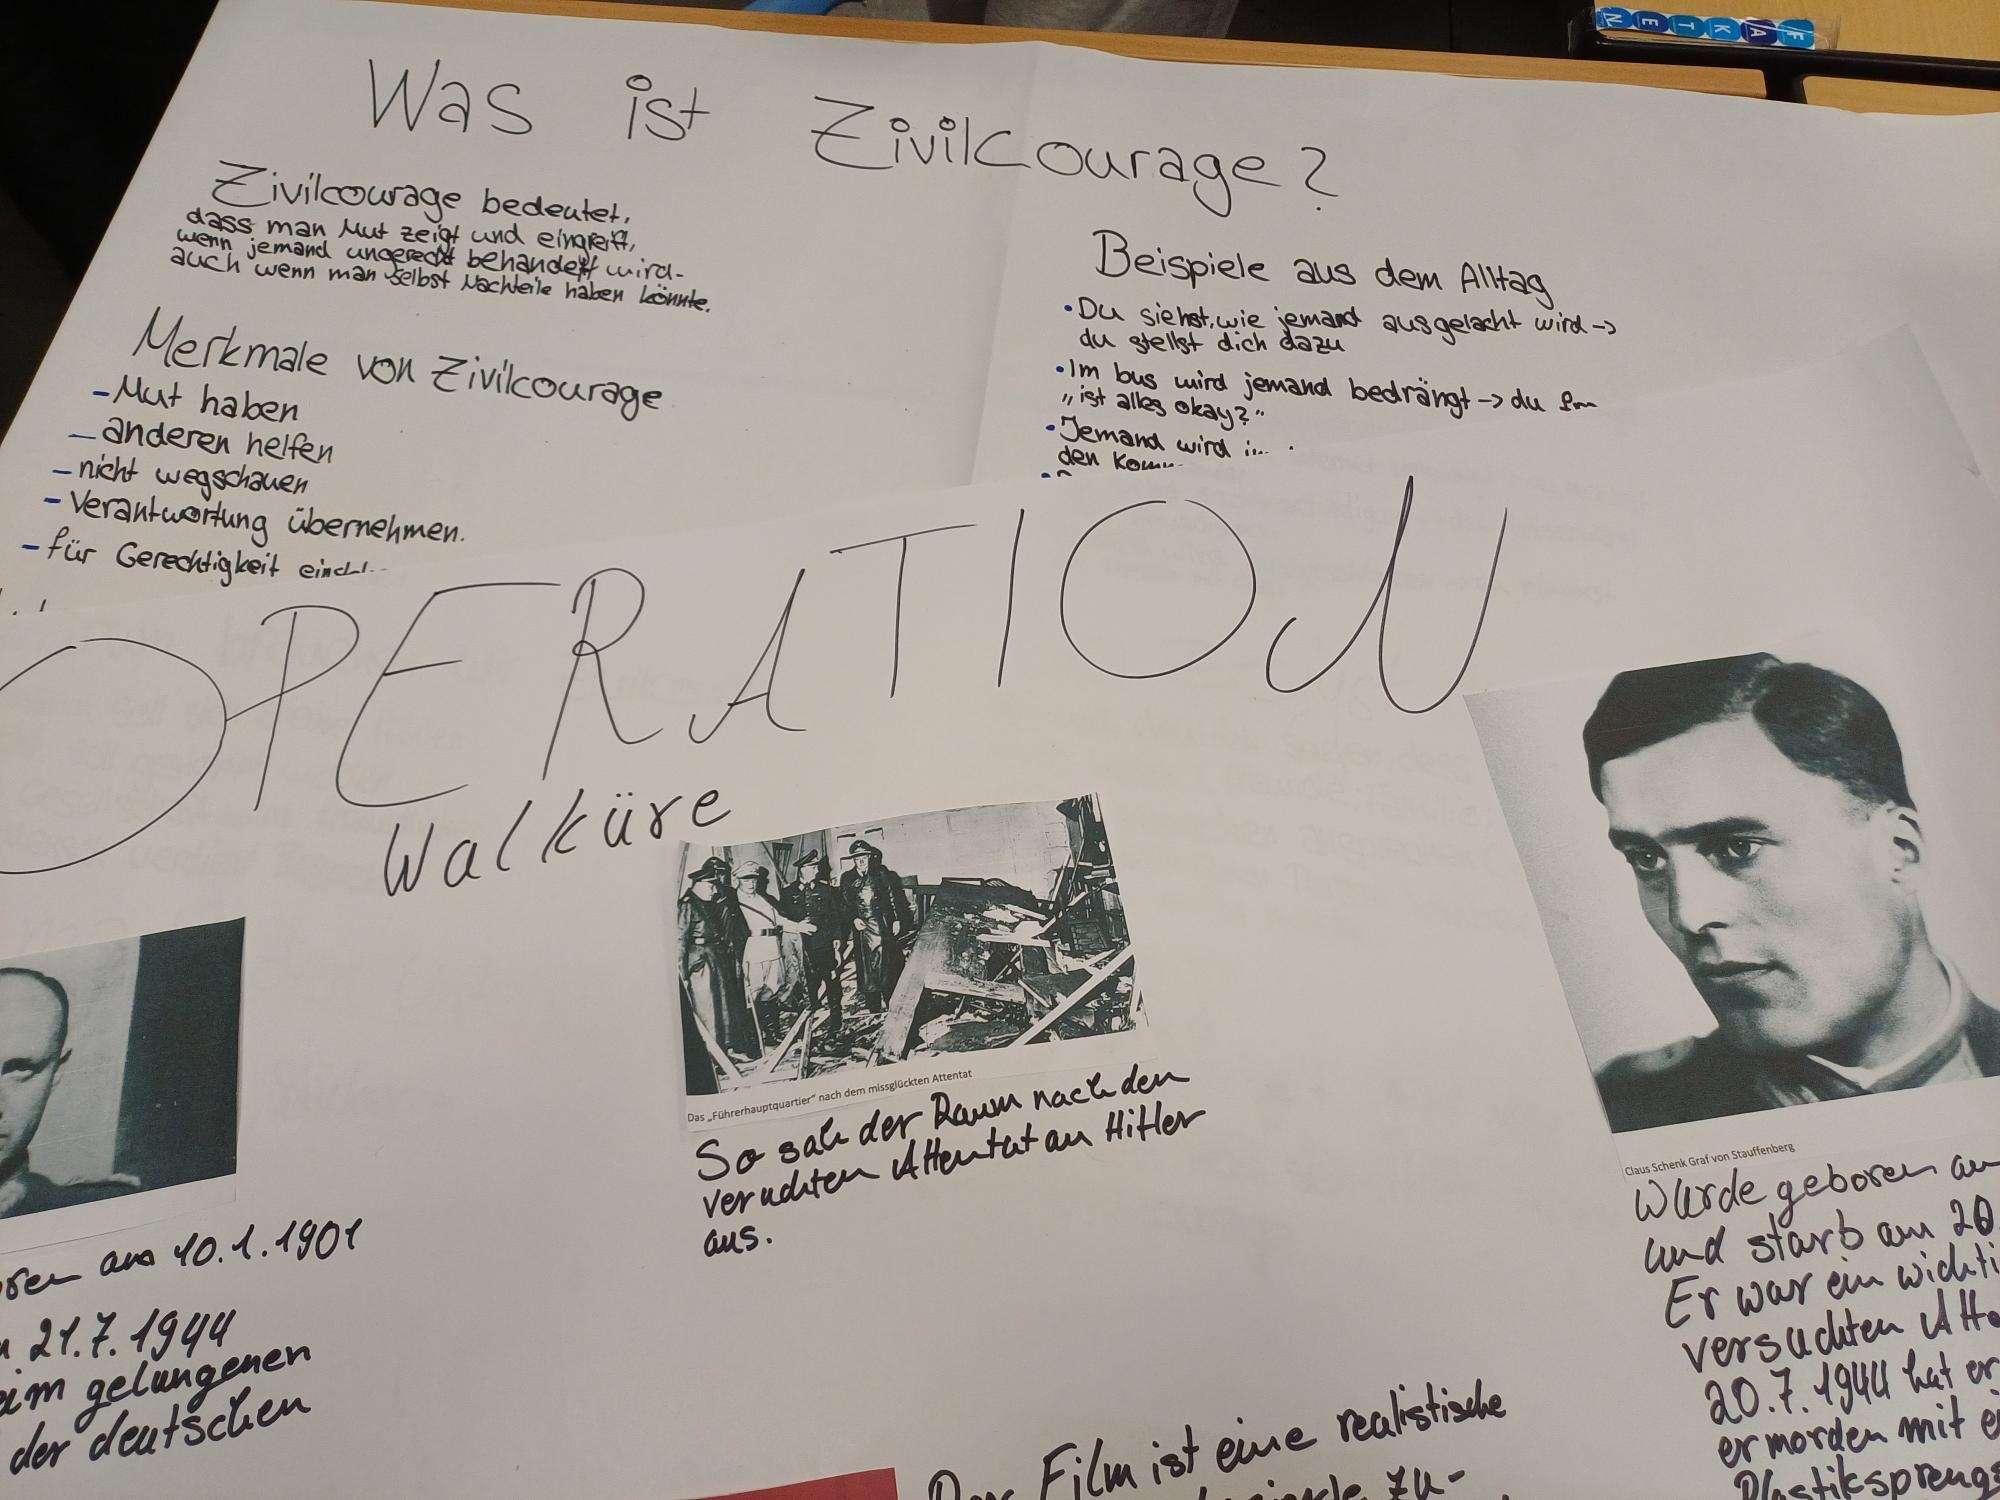 Was ist Zivilcourage?
Zivilcourage bedeutet,
dass man Mut zeigt und eingreift,
wenn jemand ungerecht behandelt wird-
auch wenn man selbst Nachteile haben könnte.
Merkmale von Zivilcourage
- Mut haben
- anderen helfen
- nicht wegschauen
- Verantwortung übernehmen.
- für Gerechtigkeit
Beispiele aus dem Alltag
• Du siehst, wie jemand ausgelacht wird ->
du stellst dich dazu
• Im bus wird jemand bedrängt -> du
„ist alles okay?"
• Jemand wird
den
OPERATION
Walküre
am 10.1.1901
21.7.1944
gelungenen
der deutschen
Das „Führerhauptquartier" nach dem missglückten Attentat
So sah der Raum nach den
versuchten Attentat an Hitler
aus.
Film ist eine realistische
zu-
Claus Schenk Graf von Stauffenberg
Wurde geboren am
und starb am 20.
Er war ein
versuchten
20.7.1944 hat er
ermorden mit
NETKAF